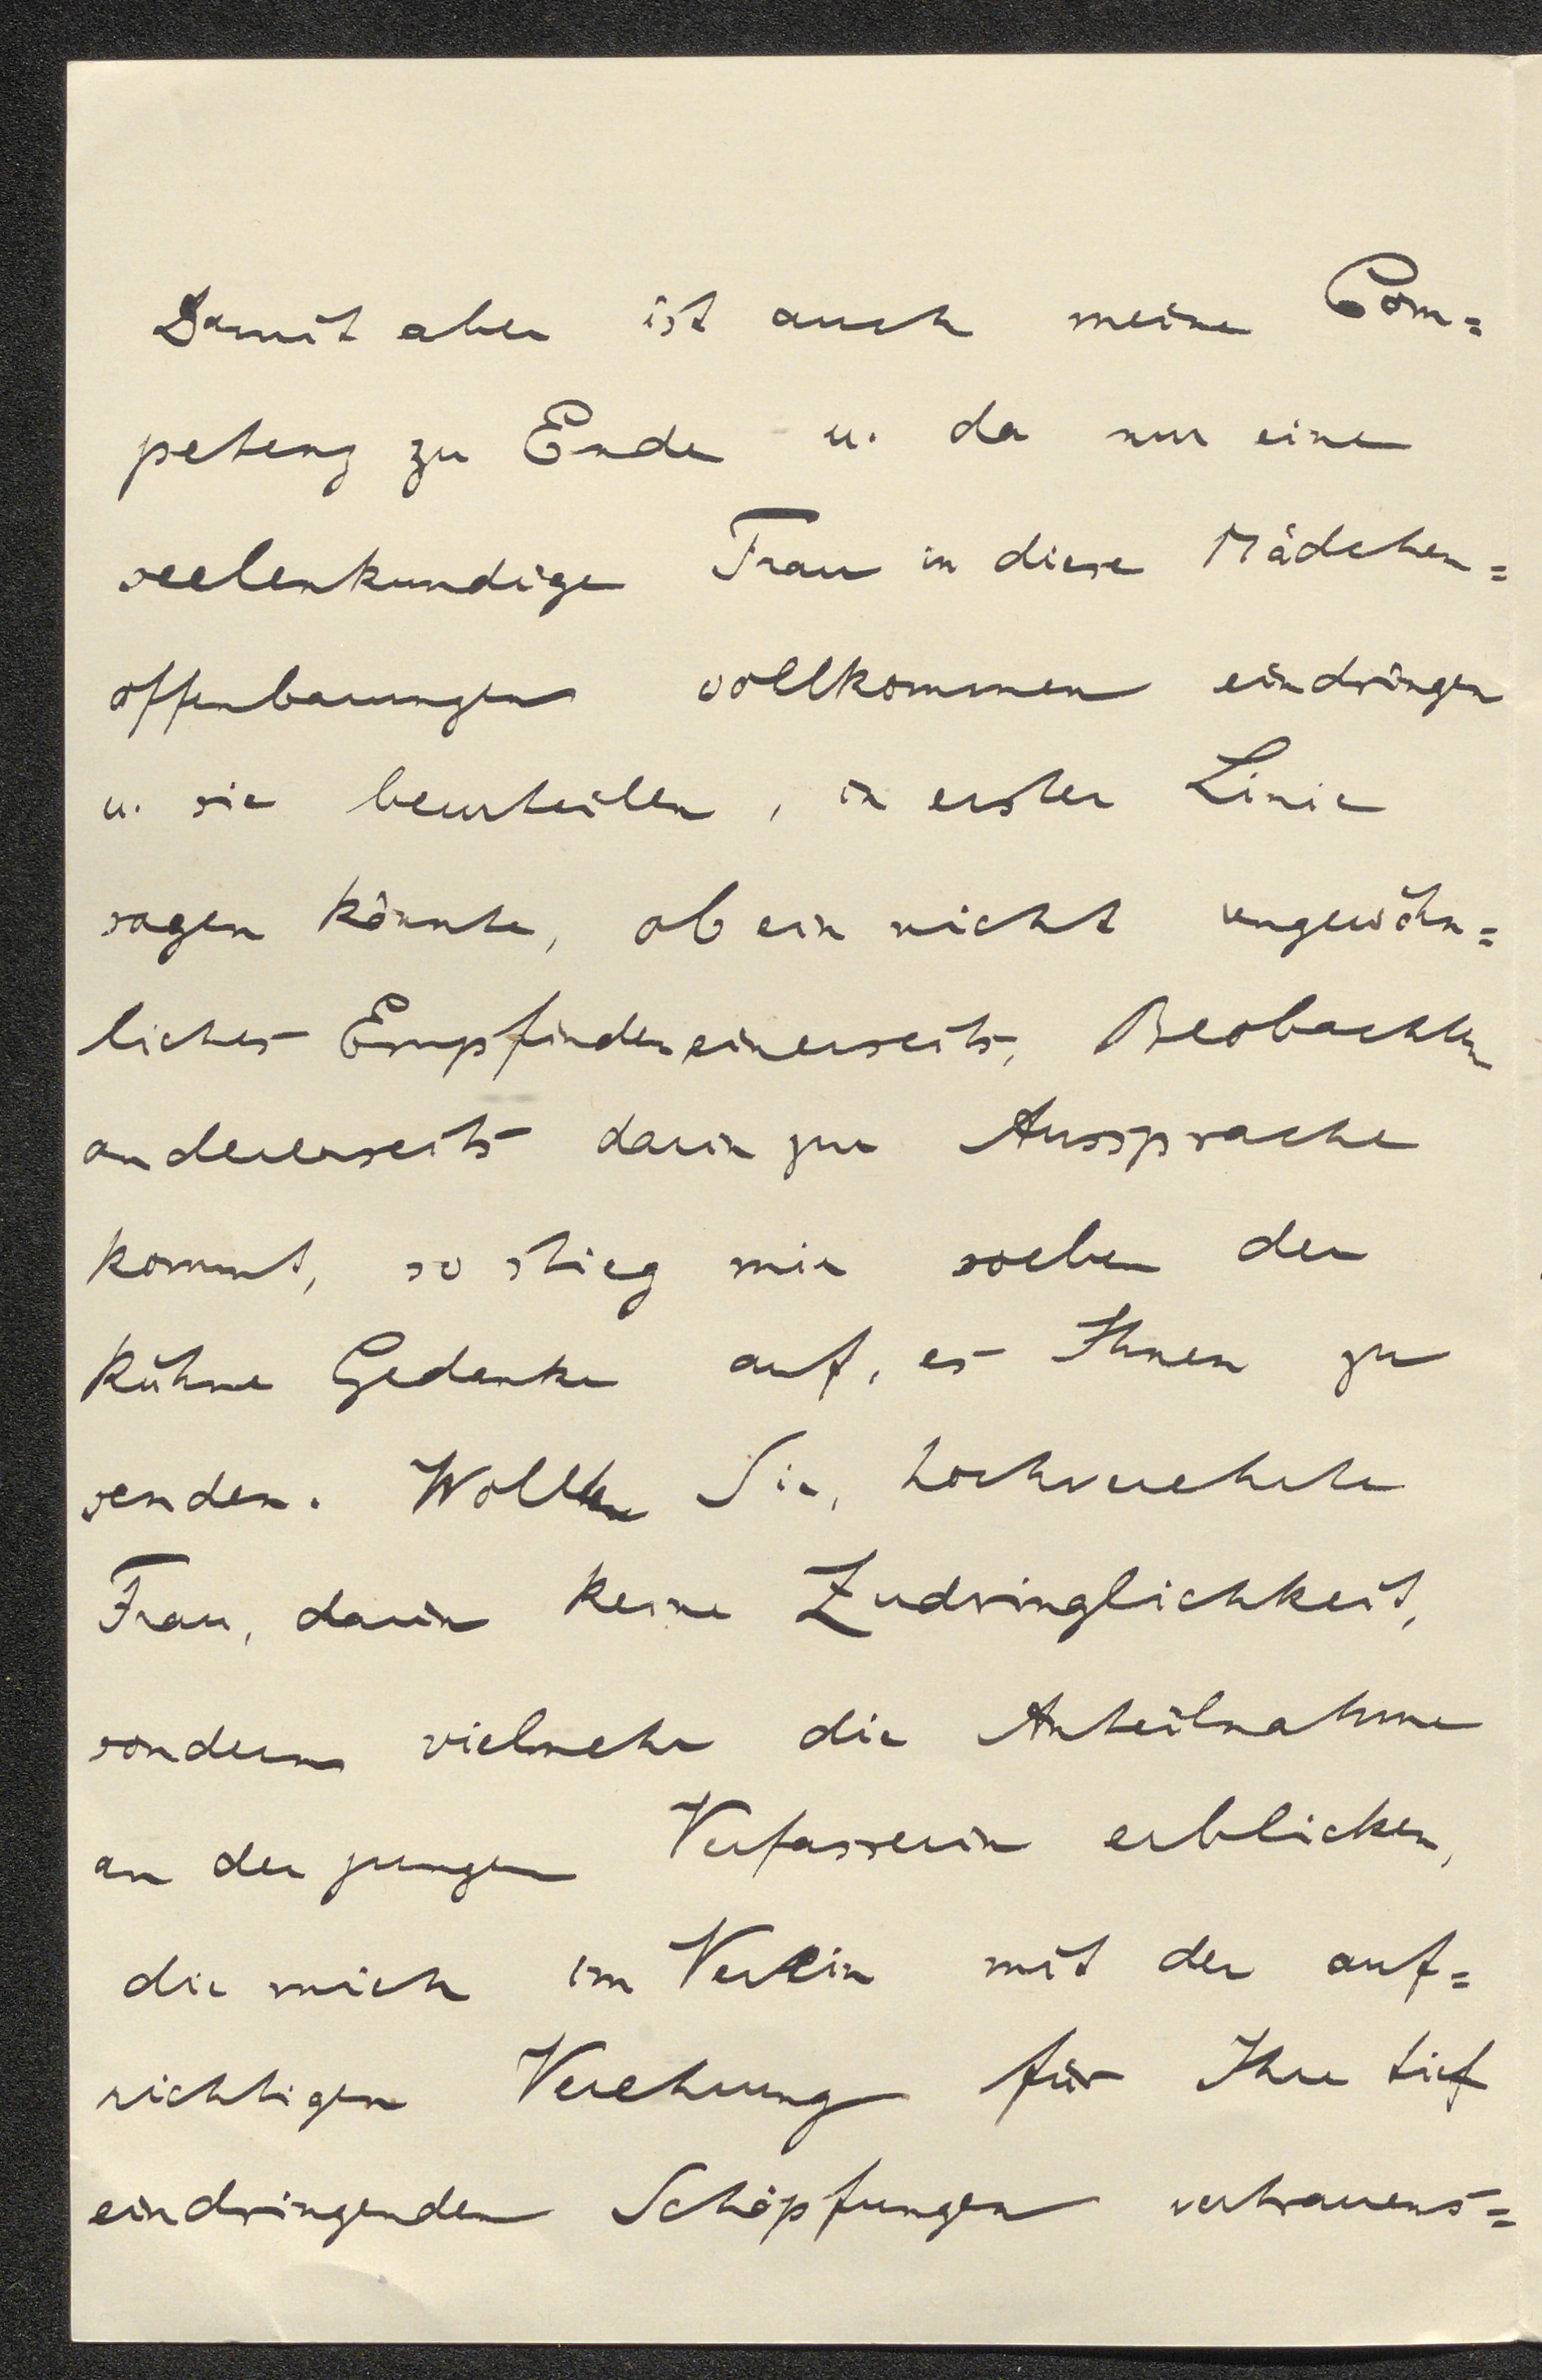 Damit aber ist auch meine Com=
petenz zu Ende u. da nur eine
seelenkundige Frau in diese Mädchen=
offenbarungen vollkommen eindringen
u. sie beurteilen, in erster Linie
sagen könnte, ob ein nicht ungewöhn=
liches Empfinden einerseits, Beobachten
andererseits darin zur Aussprache
kommt, so stieg mir soeben der
kühne Gedanke auf, es Ihnen zu
senden. Wollen Sie, hochverehrte
Frau, darin keine Zudringlichkeit,
sondern vielmehr die Anteilnahme
an der jungen Verfasserin erblicken,
die mich im Verein mit der auf=
richtigen Verehrung für Ihre tief
eindringenden Schöpfungen vertrauens=